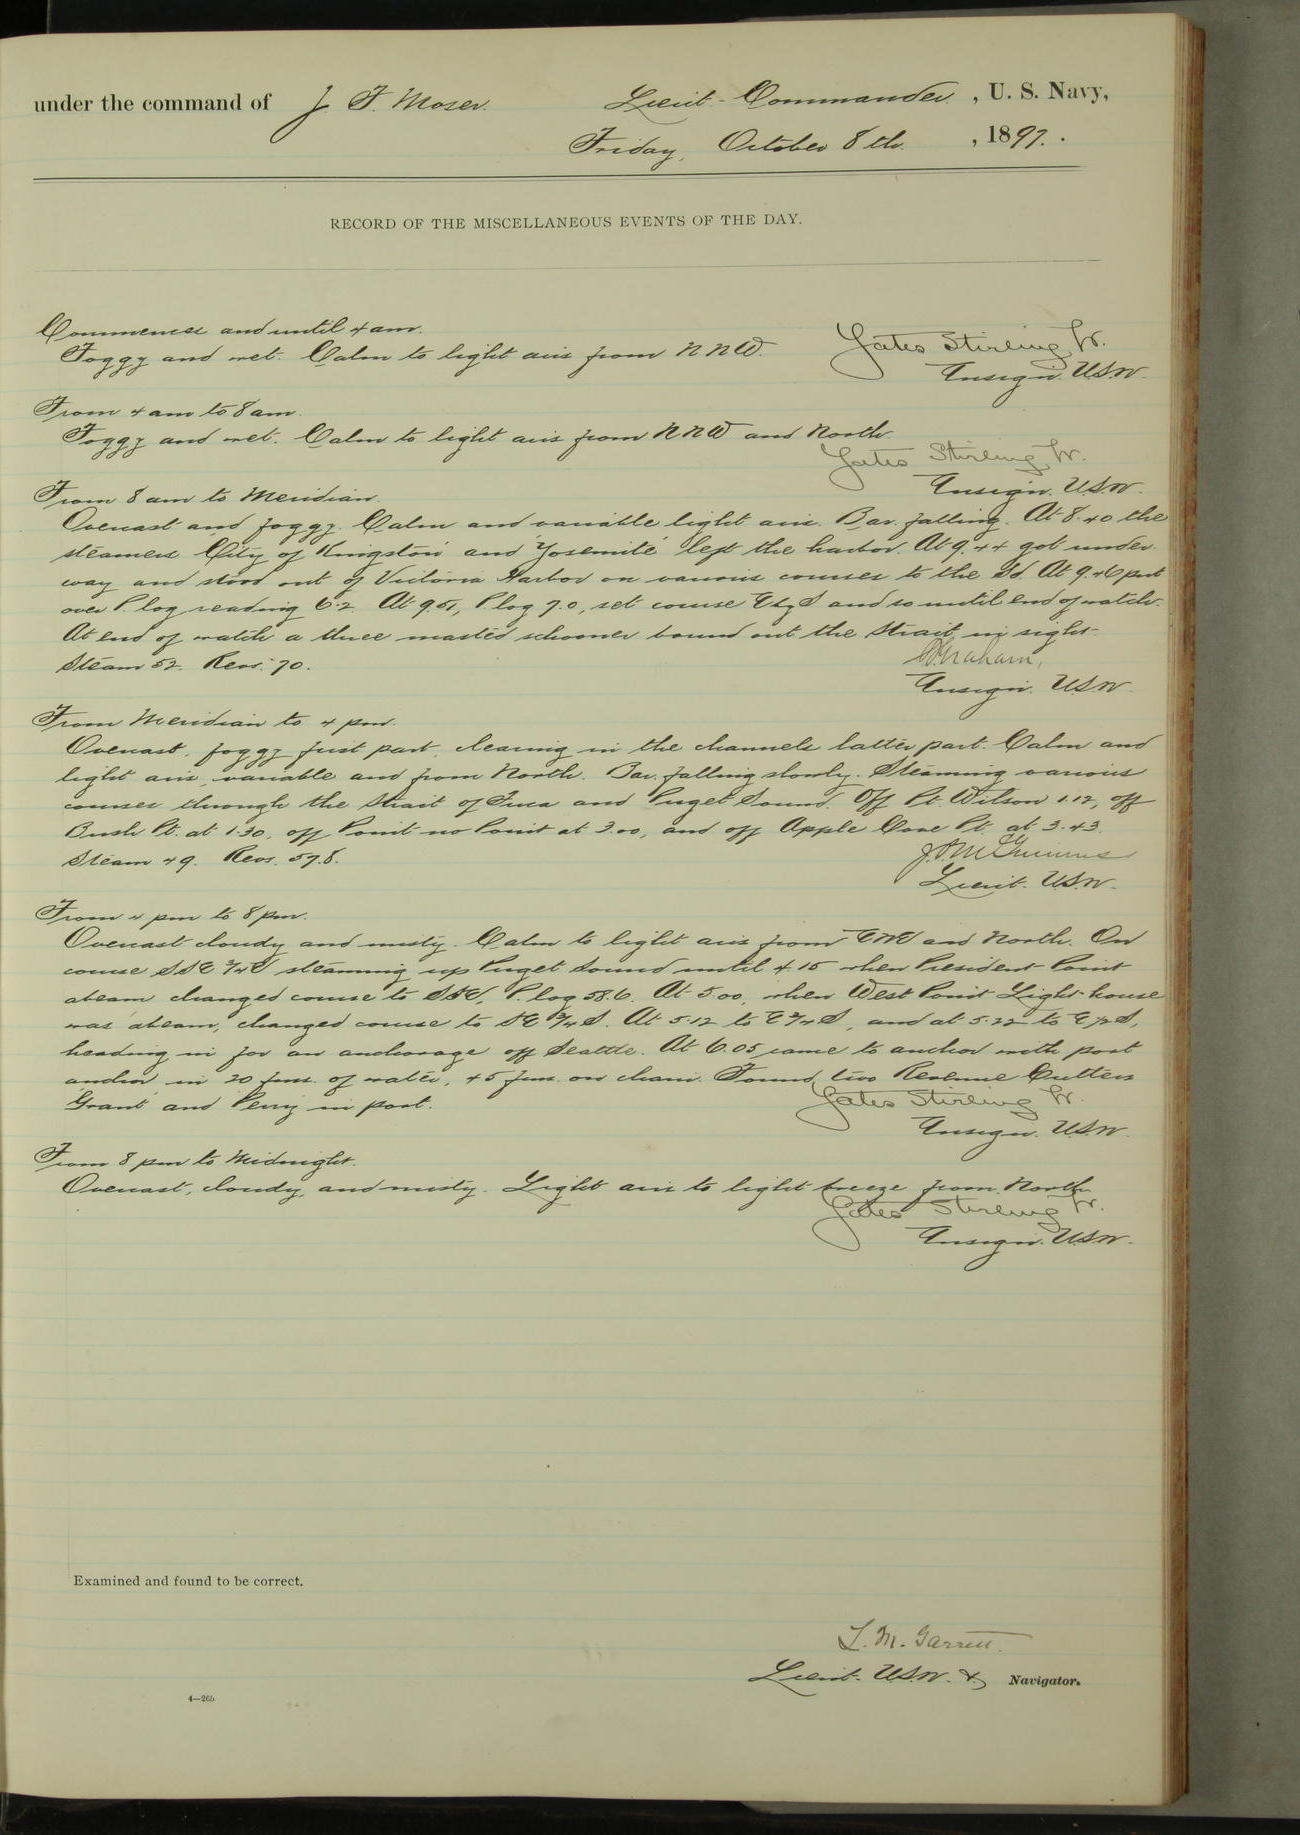 under the command of J. F. Moser. Lieut-Commander, U. S. Navy,
Friday, October 8th, 1897.
RECORD OF THE MISCELLANEOUS EVENTS OF THE DAY.
Commences and until 4 am.
Foggy and wet. Calm to light airs from NNW.
Yates Stirling Jr.
Ensign. U.S.N.
From 4 am to 8 am.
Foggy and wet. Calm to light airs from NNW and North.
Yates Stirling Jr.
Ensign. U.S.N.
From 8 am to Meridian.
Overcast and foggy. Calm and variable light airs. Bar. falling. At 8.40 the
steamers "City of Kingston" and "Yosemite" left the harbor. At 9.44 got under-
way and stood out of Victoria Harbor on various courses to the Sd. At 9.46 put
over P. log reading 6.2. At 9.51, P. log 7.0, set course E by S and so until end of watch.
At end of watch a three masted schooner bound out the Strait in sight.
Steam 52. Revs. 70.
Graham,
Ensign. U.S.N.
From Meridian to 4 pm.
Overcast, foggy first part, clearing in the channels latter part. Calm and
light airs, variable and from North. Bar. falling slowly. Steaming various
courses through the Strait of Fuca and Puget Sound. Off Pt. Wilson 1.12, off
Bush Pt. at 1.30, off Point no Point at 3.00, and off Apple Cove Pt. at 3.43.
Steam 49. Revs. 57.8.
Lieut. U.S.N.
From 4 pm to 8 pm.
Overcast cloudy and misty. Calm to light airs from and North. On
course SSE 3/4 E steaming up Puget Sound until 4.15 when President Point
abeam changed course to P. log 58.6. At 5.00, when West Point Light-house
was abeam, changed course to SE 3/4 S. At 5.12 to E 3/4 S, and at 5.22 to E 1/2 S,
heading in for an anchorage off Seattle. At 6.05 came to anchor with port
anchor in 20 fms. of water, 45 fms. on chain. Found two Revenue Cutters
"Grant" and "Perry" in port.
Yates Stirling Jr.
Ensign. U.S.N.
From 8 pm to Midnight.
Overcast, cloudy, and misty. Light airs to light breeze from North.
Yates Stirling Jr.
Ensign. U.S.N.
Examined and found to be correct.
L. M. Garrett.
Lieut. U.S.N. & Navigator.
4—265